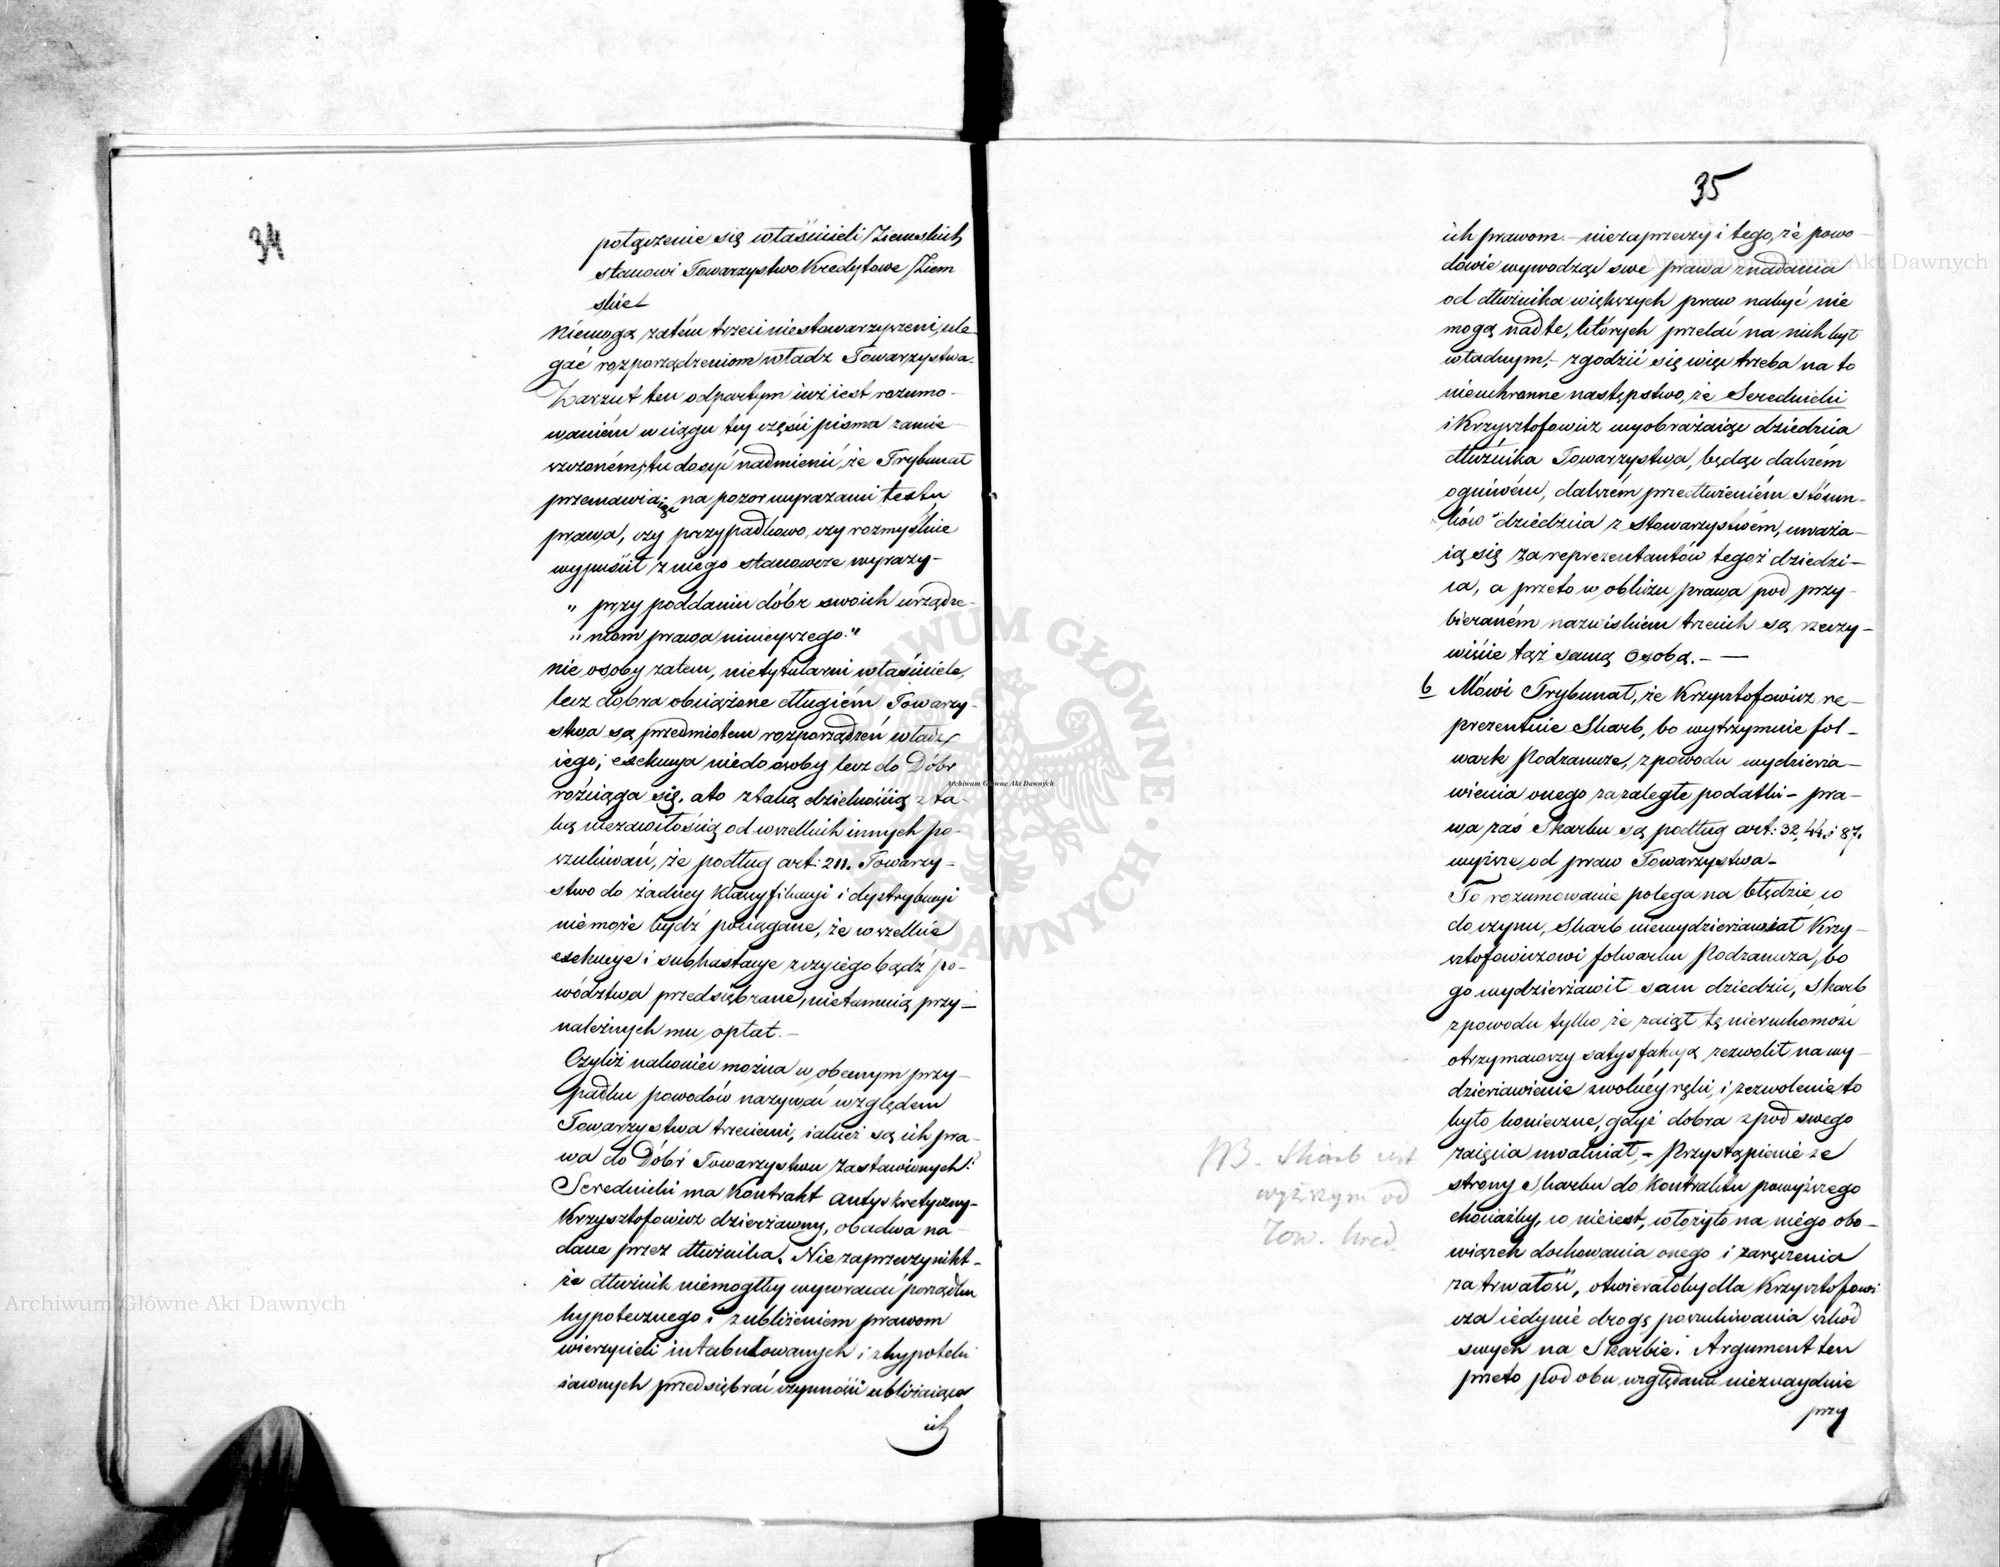 34
połączenie się właścicieli Ziemskich
stanowi Towarzystwo Kredytowe Ziem
skie
Niemogą zatém trzeci niestowarzyszeni, ule-
gać rozporządzeniom władz Towarzystwa.
Zarzut ten odpartym iuż iest rozumo-
waniem w ciągu tey części pisma zamie-
szczoném, tu dosyć nadmienić, że Trybunał
przemawiaiąc na pozór wyrazami textu
prawa, czy przypadkowo, czy rozmyślnie
wypuścił z niego stanowcze wyrazy-
" przy poddaniu dóbr swoich urządze-
" niom prawa ninieyszego."
nie osoby zatem, nietytularni właściciele,
lecz dobra obciążone długiem Towarzy-
stwa są przedmiotem rozporządzeń władz
iego; exekucya niedo osoby lecz do Dóbr
rozciąga się, a to z taką dzielnością z ta-
ką niezawiłością od wszelkich innych po-
szukiwań, że podług art: 211. Towarzy-
stwo do żadney klassyfikacyi i dystrybucyi
niemoże bydź pociągane, że wszelkie
exekucye i subhastacye z czyiego bądź po-
wództwa przedsiębrane, nietamuią przy-
należnych mu opłat.-
Czyliż nakoniec można w obecnym przy-
padku powodów nazywać względem
Towarzystwa trzeciemi, iakież są ich pra-
wa do Dóbr Towarzystwu zastawionych?
Serednicki ma Kontrakt antychretyczny-
Krzysztofowicz dzierżawny, obadwa na-
dane przez dłużnika. Nie zaprzeczy nikt-
że dłużnik niemógłby wywracać porządku
hypotecznego i z ubliżeniem prawom
wierzycieli intabulowanych i z hypoteki
iawnych przedsiębrać czynności ubliżaiące
ich
35
ich prawom.- niezaprzeczy i tego, że powo-
dowie wywodząc swe prawa z nadania
od dłużnika większych praw nabyć nie
mogą nad te, których przelać na nich był
władnym;- zgodzić się więc trzeba na to
nieuchronne następstwo, że Serednicki
i Krzysztofowicz wyobrażaiąc dziedzica
dłużnika Towarzystwa, będąc dalszém
ogniwém, dalszém przedłużeniém stósun-
ków dziedzica z Stowarzystwém, uważa-
ią się za reprezentantów tegoż dziedzi-
ca, a przeto w obliczu prawa pod przy-
bieraném nazwiskiem trzecich są rzeczy-
wiście tąż samą osobą.-
6 Mówi Trybunał, że Krzysztofowicz re-
prezentuie Skarb, bo wytrzymuie fol-
wark Rodzanuza, z powodu wydzierża-
wienia onego za zaległe podatki- pra-
wa zaś Skarbu są podług art: 32, 44 i 87.
wyższe od praw Towarzystwa-
To rozumowanie polega na błędzie co
do czynu, Skarb niewydzierżawiał Krzy-
sztofowiczowi folwarku Rodzanuza, bo
go wydzierżawił sam dziedzic, Skarb
z powodu tylko że zaiął tę nieruchomość
otrzymawszy satysfakcyą zezwolił na wy-
dzierżawienie z wolnéy ręki, i zezwolenie to
było konieczne, gdyż dobra z pod swego
zaięcia uwalniał,- Przystąpienie ze
strony Skarbu do Kontraktu powyższego
chociażby, co nieiest, włożyło na niego obo-
wiązek dochowania onego i zaręczenia
za trwałość, otwierałoby dla Krzysztofowi
cza iedynie drogę poszukiwania szkód
swych na Skarbie. Argument ten
przeto pod obu względami nieznayduie
przy
NB. Skarb iest
wyższym od
Tow. Kred.
Archiwum Główne Akt Dawnych
Archiwum Główne Akt Dawnych
Archiwum Główne Akt Dawnych
ARCHIWUM GŁÓWNE AKT DAWNYCH